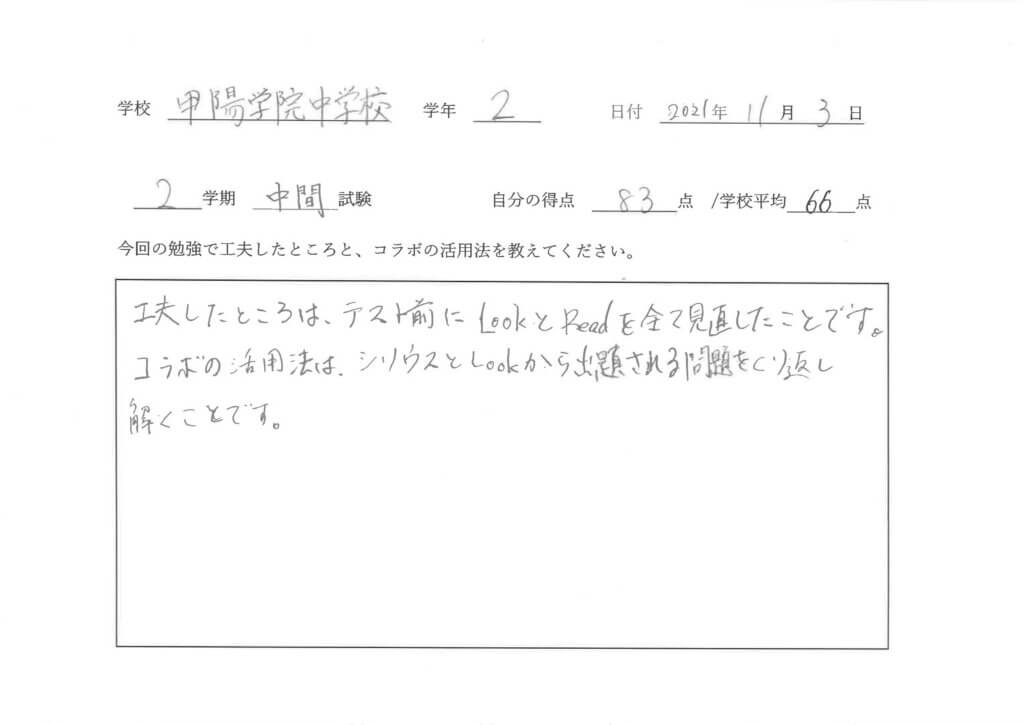 学校 甲陽学院中学校 学年 2 日付 2021年 11月 3日
2学期 中間試験 自分の得点 83点 /学校平均 66点
今回の勉強で工夫したところと、コラボの活用法を教えてください。
工夫したところは、テスト前に LookとReadを全て見直したことです。
コラボの活用法は、シリウスとLookから出題される問題をくり返し
解くことです。